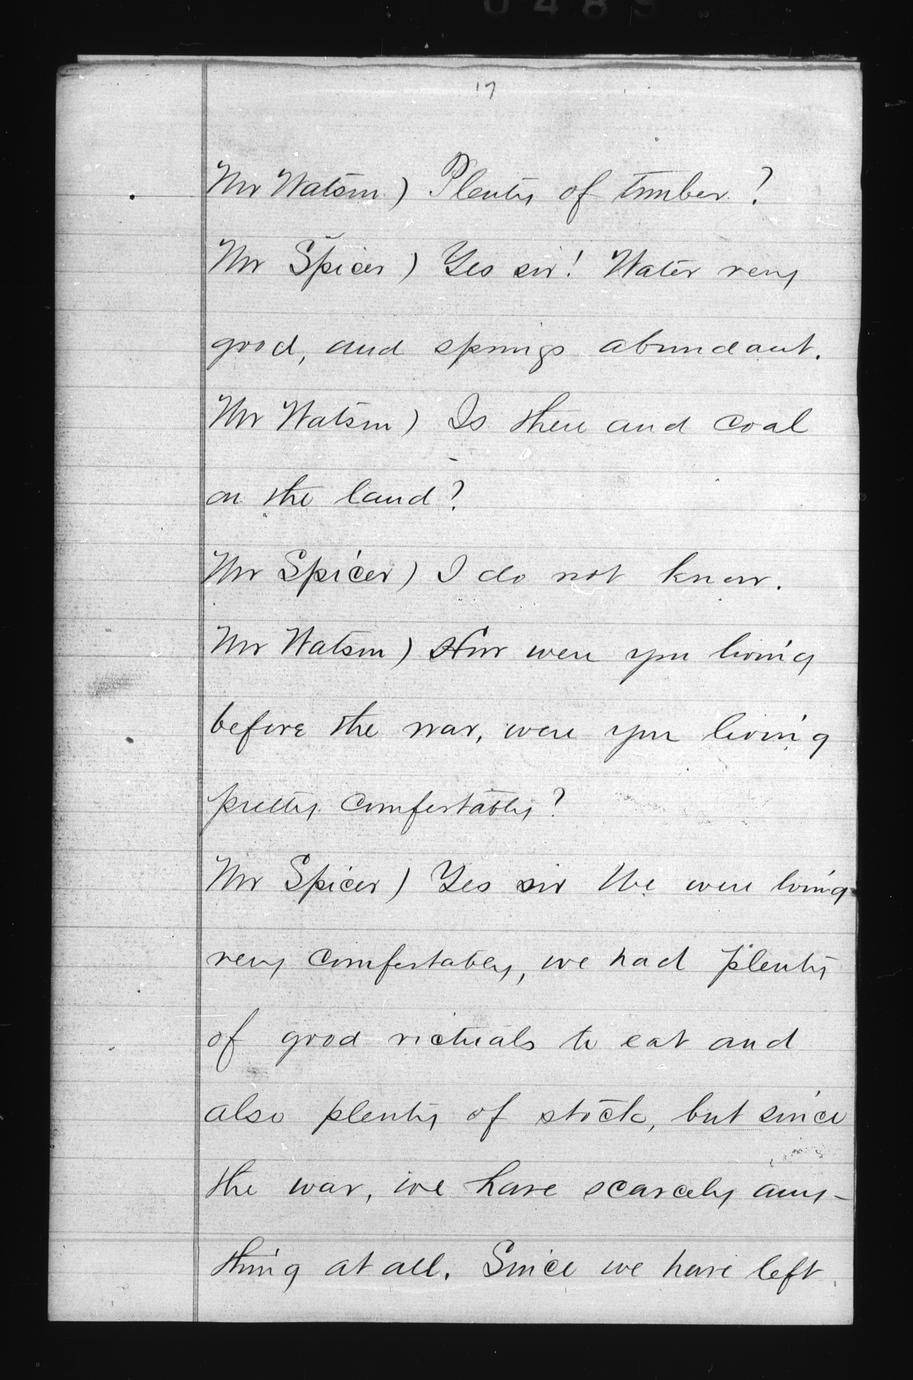 0483
17
Mr Watson) Plenty of timber?
Mr Spicer) Yes sir! Water very
good, and springs abundant.
Mr Watson) Is there and coal
on the land?
Mr Spicer) I do not know.
Mr Watson) How were you living
before the war, were you living
pretty comfortably?
Mr Spicer) Yes sir We were living
very comfortably, we had plenty
of good victuals to eat and
also plenty of stock, but since
the war, we have scarcely any-
thing at all. Since we have left